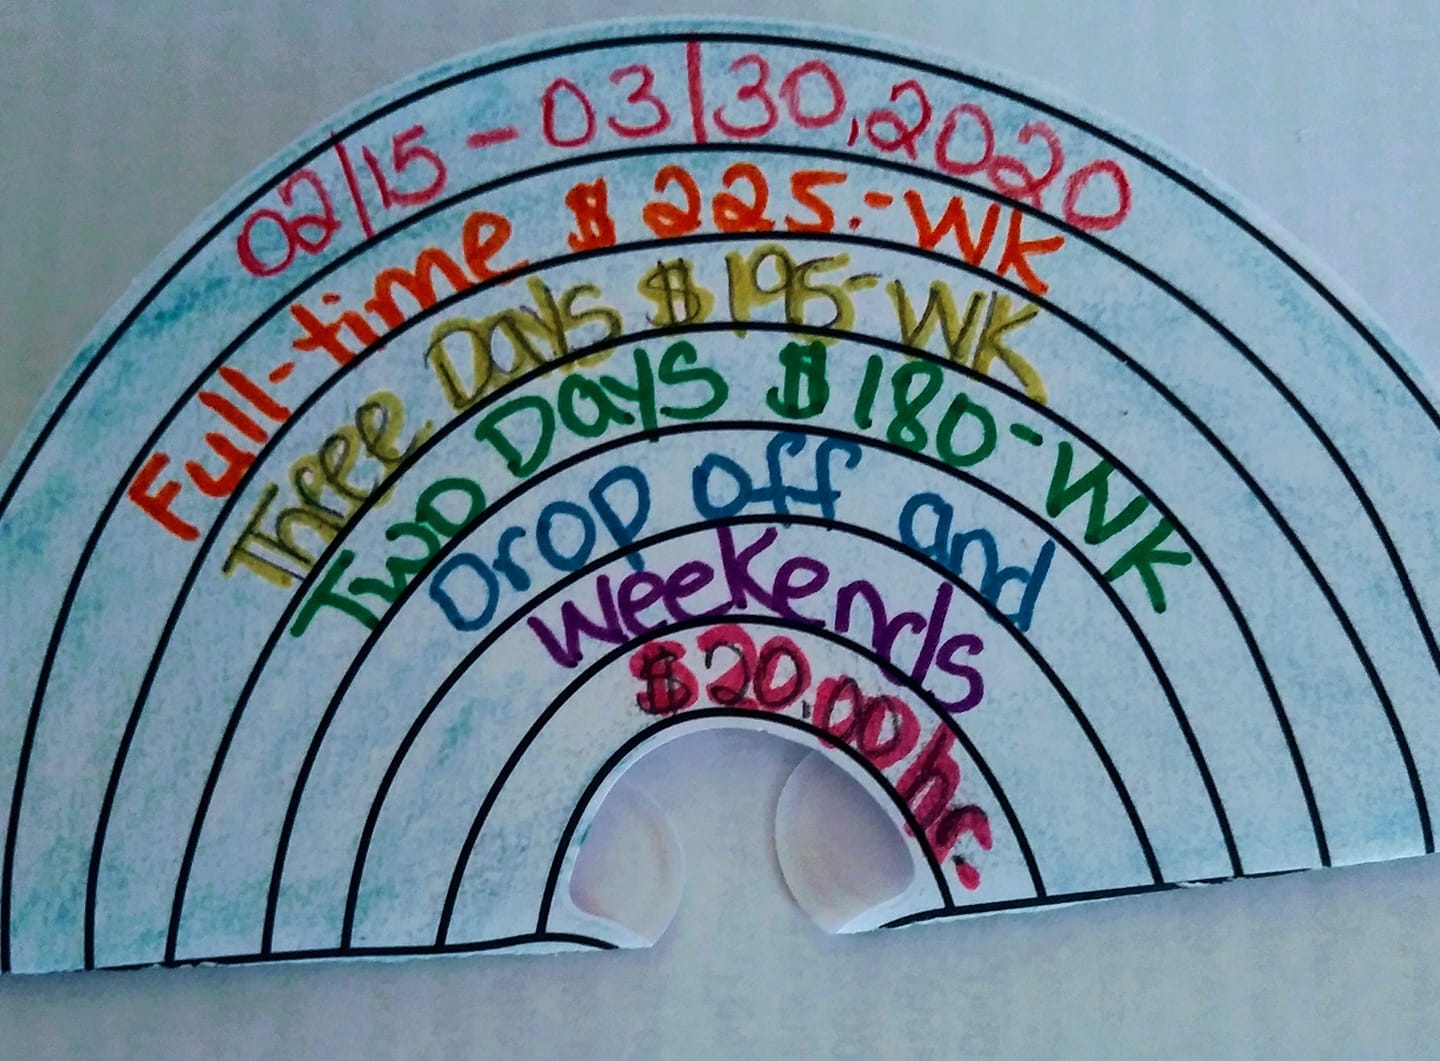 02/15 - 03/30, 2020
Full-time $225.- WK
Three Days $195- WK
Two Days $180- WK
Drop off and
weekends
$20.00 hr.